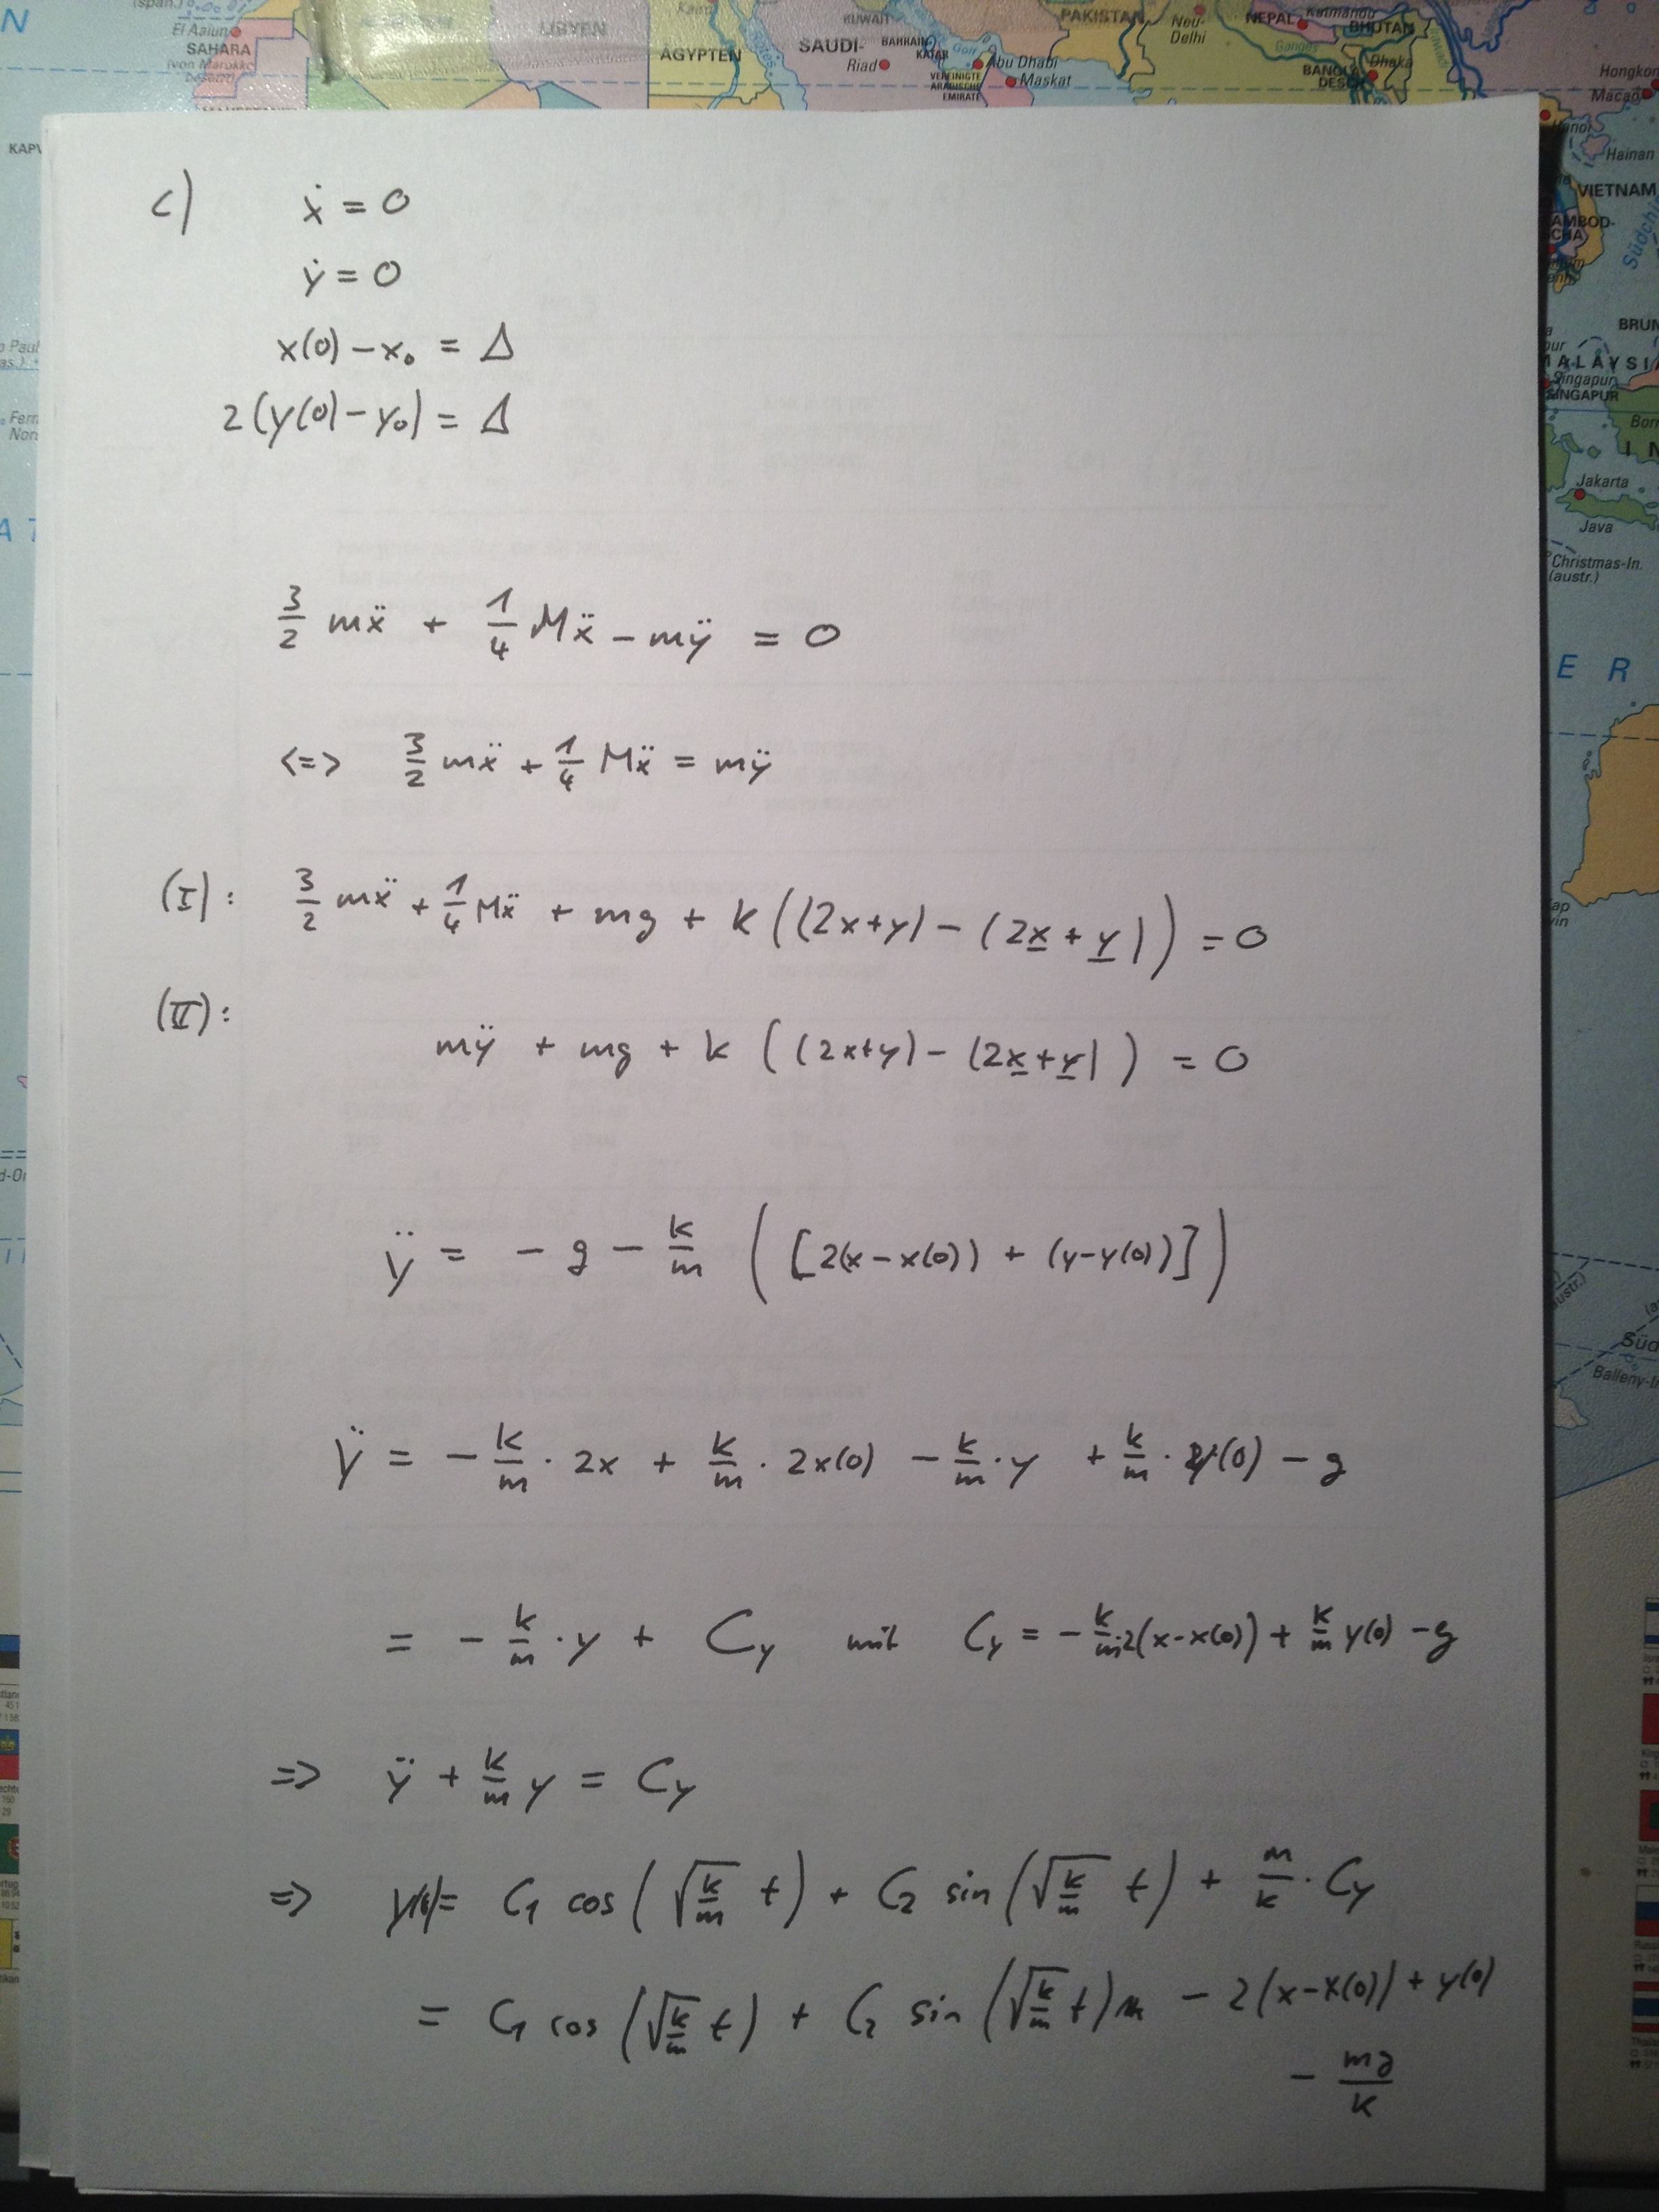 (span.)
El Aaiun
SAHARA
(von Marokko
besetzt)
LIBYEN
ÄGYPTEN
KUWAIT
SAUDI-
BAHRAIN
KATAR
Riad
Abu Dhabi
VEREINIGTE
ARABISCHE
EMIRATE
Maskat
PAKISTAN
Neu-
Delhi
NEPAL
Katmandu
BHUTAN
Ganges
Dhaka
Hongkon
Macao
Hanoi
Hainan
VIETNAM
AMBOD-
SCHA
BRUN
MALAYSIA
Singapur
SINGAPUR
Born
Jakarta
Java
Christmas-In.
(austr.)
E R
KAPV
c) ẋ = 0
ẏ = 0
x(0) - x₀ = Δ
2(y(0) - y₀) = Δ
3/2 mẍ + 1/4 Mẍ - mÿ = 0
<=> 3/2 mẍ + 1/4 Mẍ = mÿ
(I): 3/2 mẍ + 1/4 Mẍ + mg + k((2x+y) - (2x̲ + y̲)) = 0
(II):
mÿ + mg + k((2x+y) - (2x̲+y̲)) = 0
ÿ = - g - k/m ([2(x-x(0)) + (y-y(0))])
ÿ = - k/m · 2x + k/m · 2x(0) - k/m · y + k/m · y(0) - g
= - k/m · y + Cy mit Cy = - k/m·2(x-x(0)) + k/m y(0) - g
=> ÿ + k/m y = Cy
=> y(t) = C₁ cos(√(k/m) t) + C₂ sin(√(k/m) t) + m/k · Cy
= C₁ cos(√(k/m) t) + C₂ sin(√(k/m) t) - 2(x-x(0)) + y(0)
- mg/k